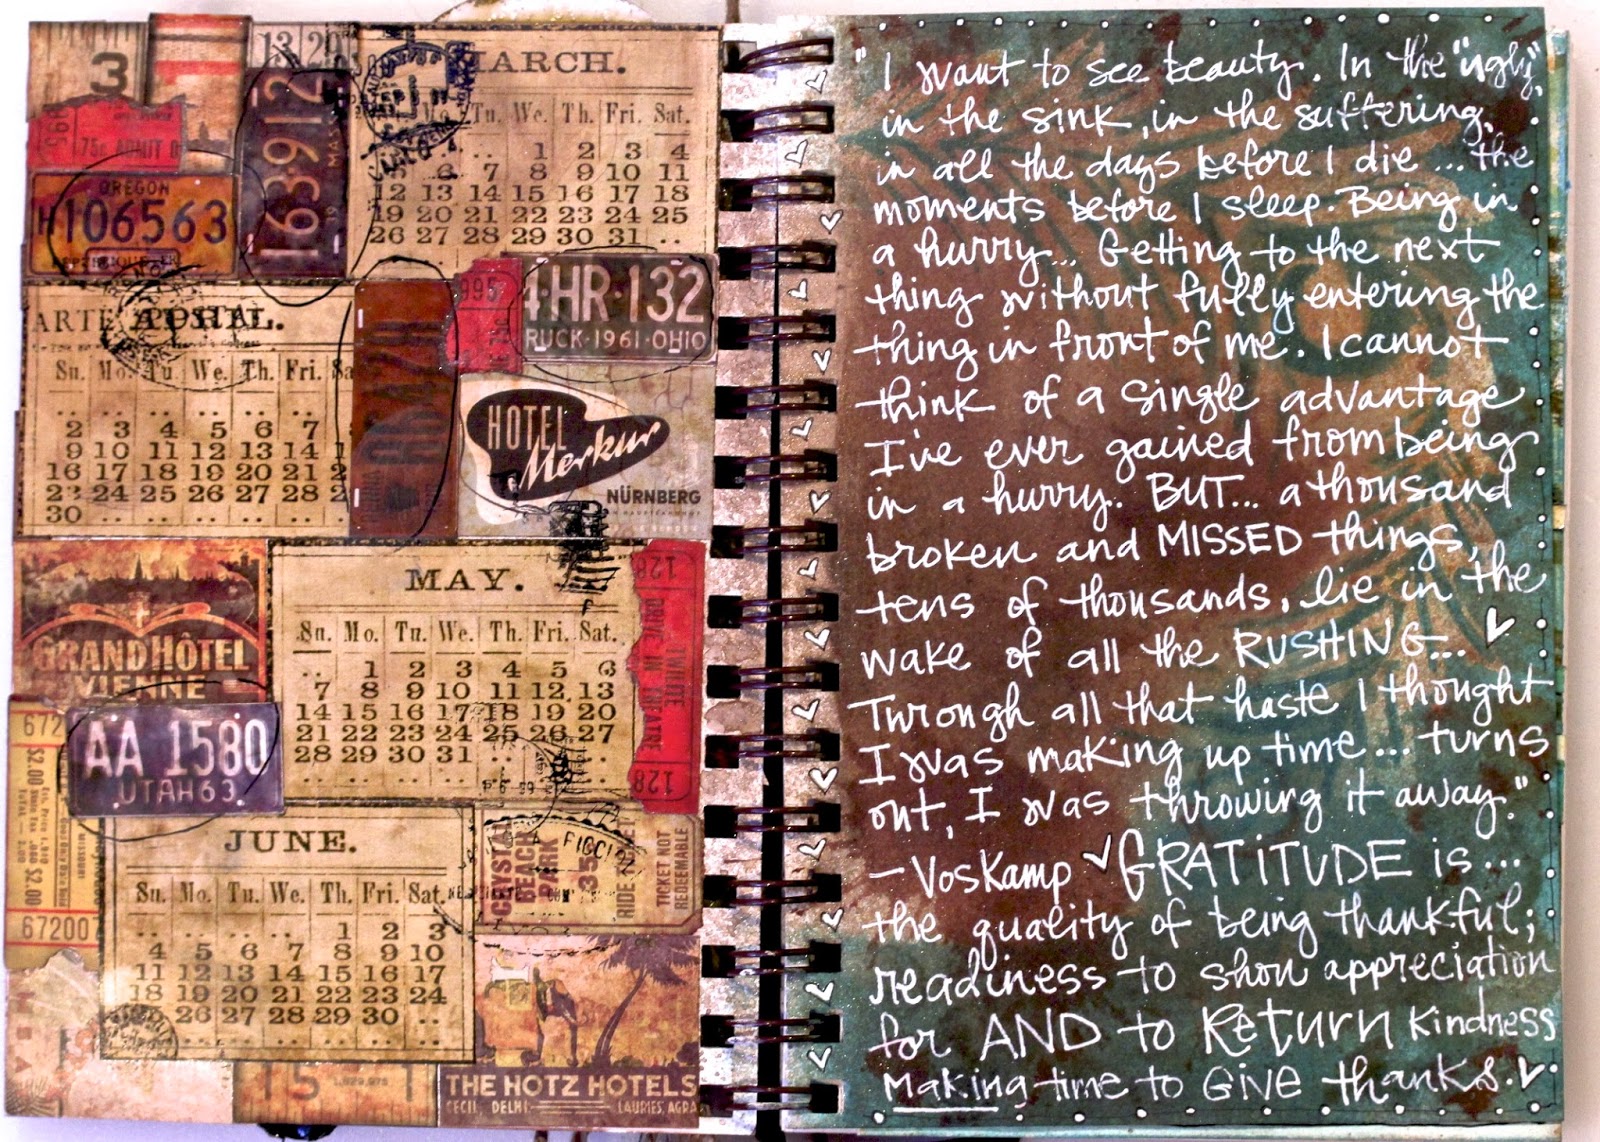 3
13 29
75¢ ADMIT O
OREGON
H106563
163·912
MARCH.
Tu. We. Th. Fri. Sat.
1 2 3 4
6 7 8 9 10 11
12 13 14 15 16 17 18
19 20 21 22 23 24 25
26 27 28 29 30 31 ..
4·HR·132
RUCK·1961·OHIO
995
ARTE
APRIL.
Su. Mo. Tu. We. Th. Fri. Sa
2 3 4 5 6 7
9 10 11 12 13 14 1
16 17 18 19 20 21 2
23 24 25 26 27 28 2
30 .. .. .. .. ..
HOTEL
Merkur
NÜRNBERG
GRAND HÔTEL
VIENNE
MAY.
Su. Mo. Tu. We. Th. Fri. Sat.
.. 1 2 3 4 5 6
7 8 9 10 11 12 13
14 15 16 17 18 19 20
21 22 23 24 25 26 27
28 29 30 31 .. .. ..
128
TWILITE
DRIVE IN THEATRE
128
672
$2.00
$2.00
672007
AA 1580
UTAH 63
JUNE.
Su. Mo. Tu. We. Th. Fri. Sat.
.. .. .. .. 1 2 3
4 5 6 7 8 9 10
11 12 13 14 15 16 17
18 19 20 21 22 23 24
25 26 27 28 29 30 ..
CRYSTAL
BEACH
PARK
35¢
RIDE TICKET
TICKET NOT
REDEEMABLE
15
THE HOTZ HOTELS
CECIL, DELHI LAURIES, AGRA
"I want to see beauty. In the "ugly",
in the sink, in the suffering,
in all the days before I die ... the
moments before I sleep. Being in
a hurry... Getting to the next
thing without fully entering the
thing in front of me. I cannot
think of a single advantage
I've ever gained from being
in a hurry. BUT... a thousand
broken and MISSED things,
tens of thousands, lie in the
wake of all the RUSHING...
Through all that haste I thought
I was making up time... turns
out, I was throwing it away."
—Voskamp GRATiTUDE is...
the quality of being thankful;
readiness to show appreciation
for AND to RETURN kindness
Making time to GIVE thanks.